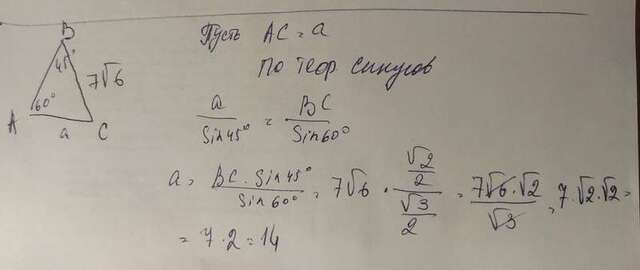 B
45°
7√6
60°
A
a
C
Пусть AC = a
По теор синусов
a/Sin45° = BC/Sin60°
a = BC·Sin45°/Sin60° = 7√6 · (√2/2)/(√3/2) = 7√6·√2/√3 = 7·√2·√2 =
= 7·2 = 14